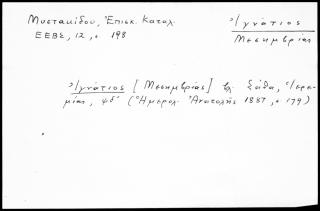 Μυστακίδου, Ἐπισκ. Κατάλ.
ΕΕΒΣ, 12, σ. 198
Ἰγνάτιος
Μεσημβρίας
Ἰγνάτιος [Μεσημβρίας] βλ. Σάθα, Ἱερεμίας, ϟδ´ (Ἡμερολ. Ἀνατολῆς 1887, σ 179)